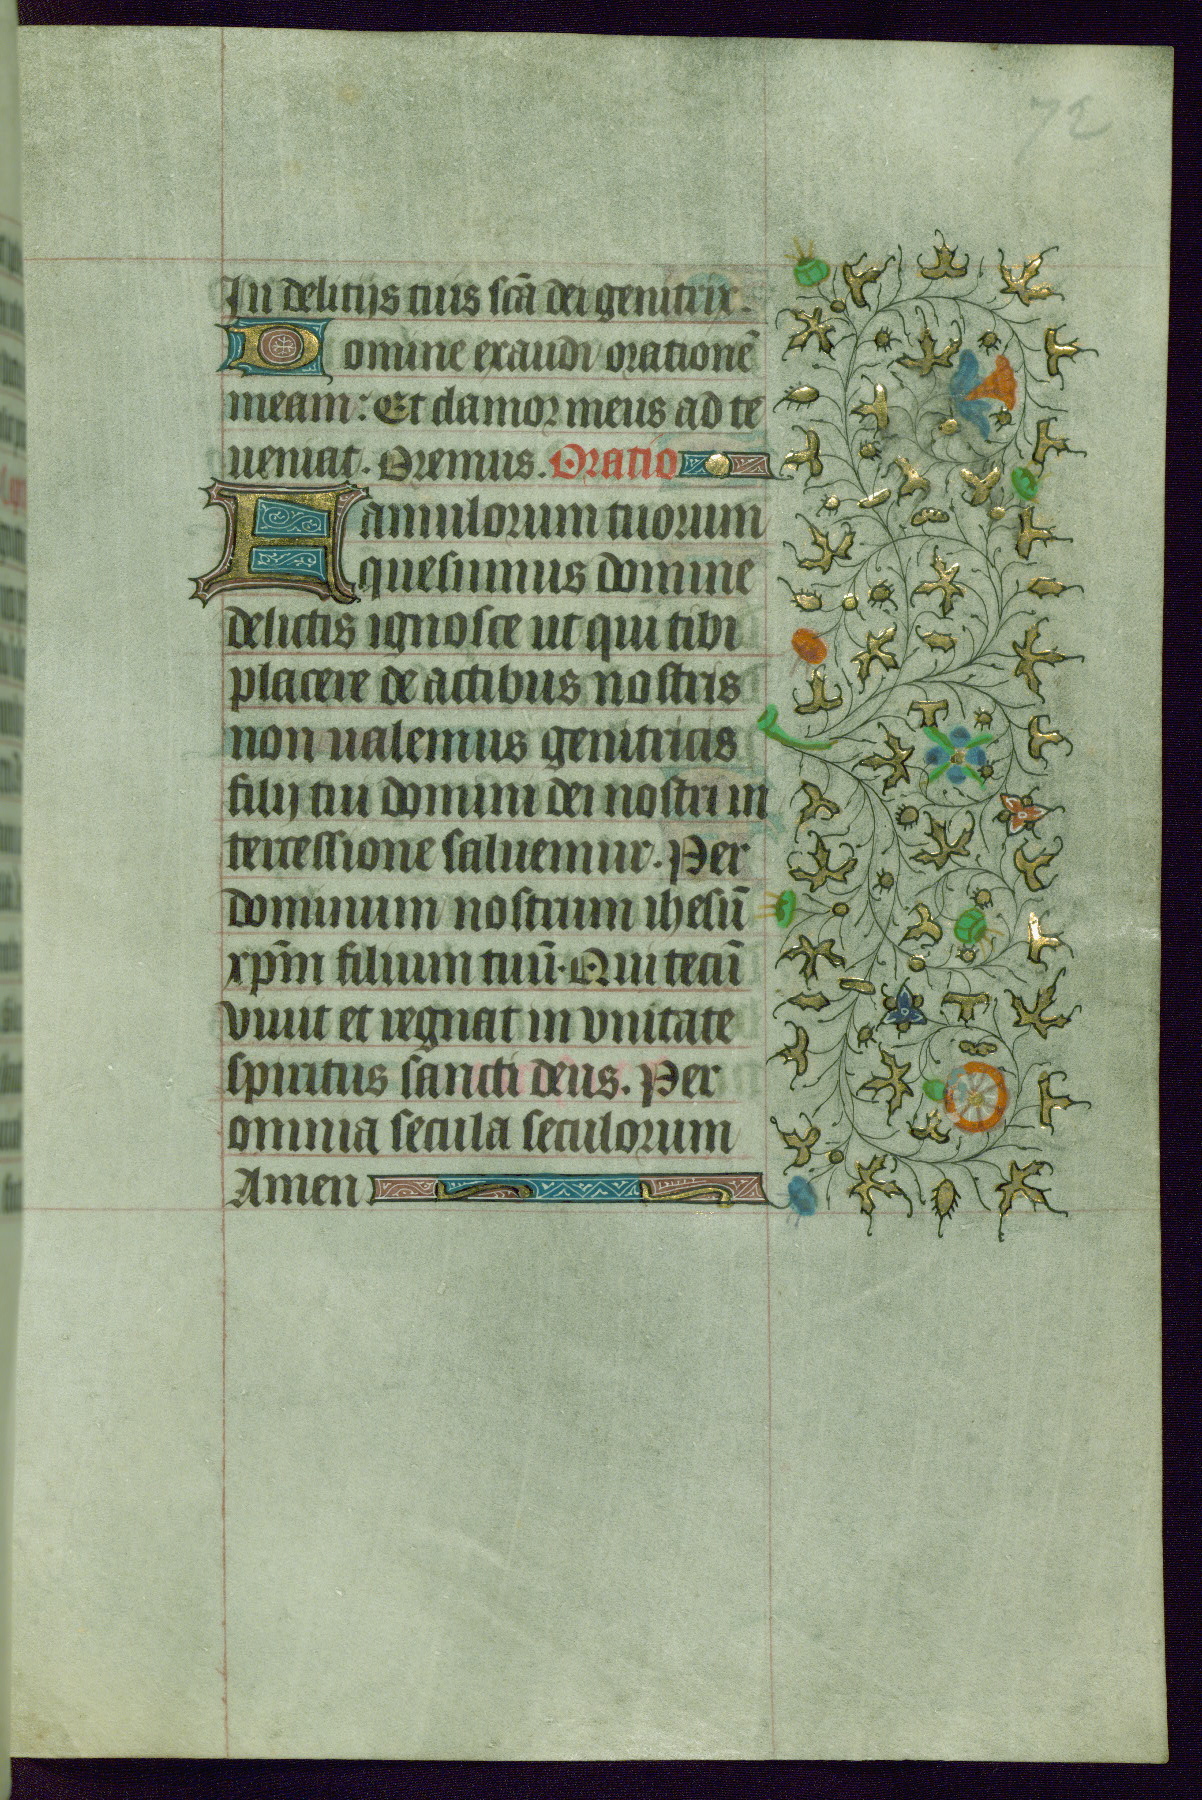 72
In delitijs tuis scā dei genitrix.
Domine exaudi orationē
meam: Et clamor meus ad te
ueniat. Oremus. Oratio
Famulorum tuorum
quesumus domine
delictis ignosce ut qui tibi
placere de actibus nostris
non ualemus genitricis
filij tui domini dei nostri in
tercessione saluemur. Per
dominum nostrum ihesū
xp̄m filium tuū. Qui tecū
viuit et regnat in vnitate
spiritus sancti deus. Per
omnia secula seculorum
Amen